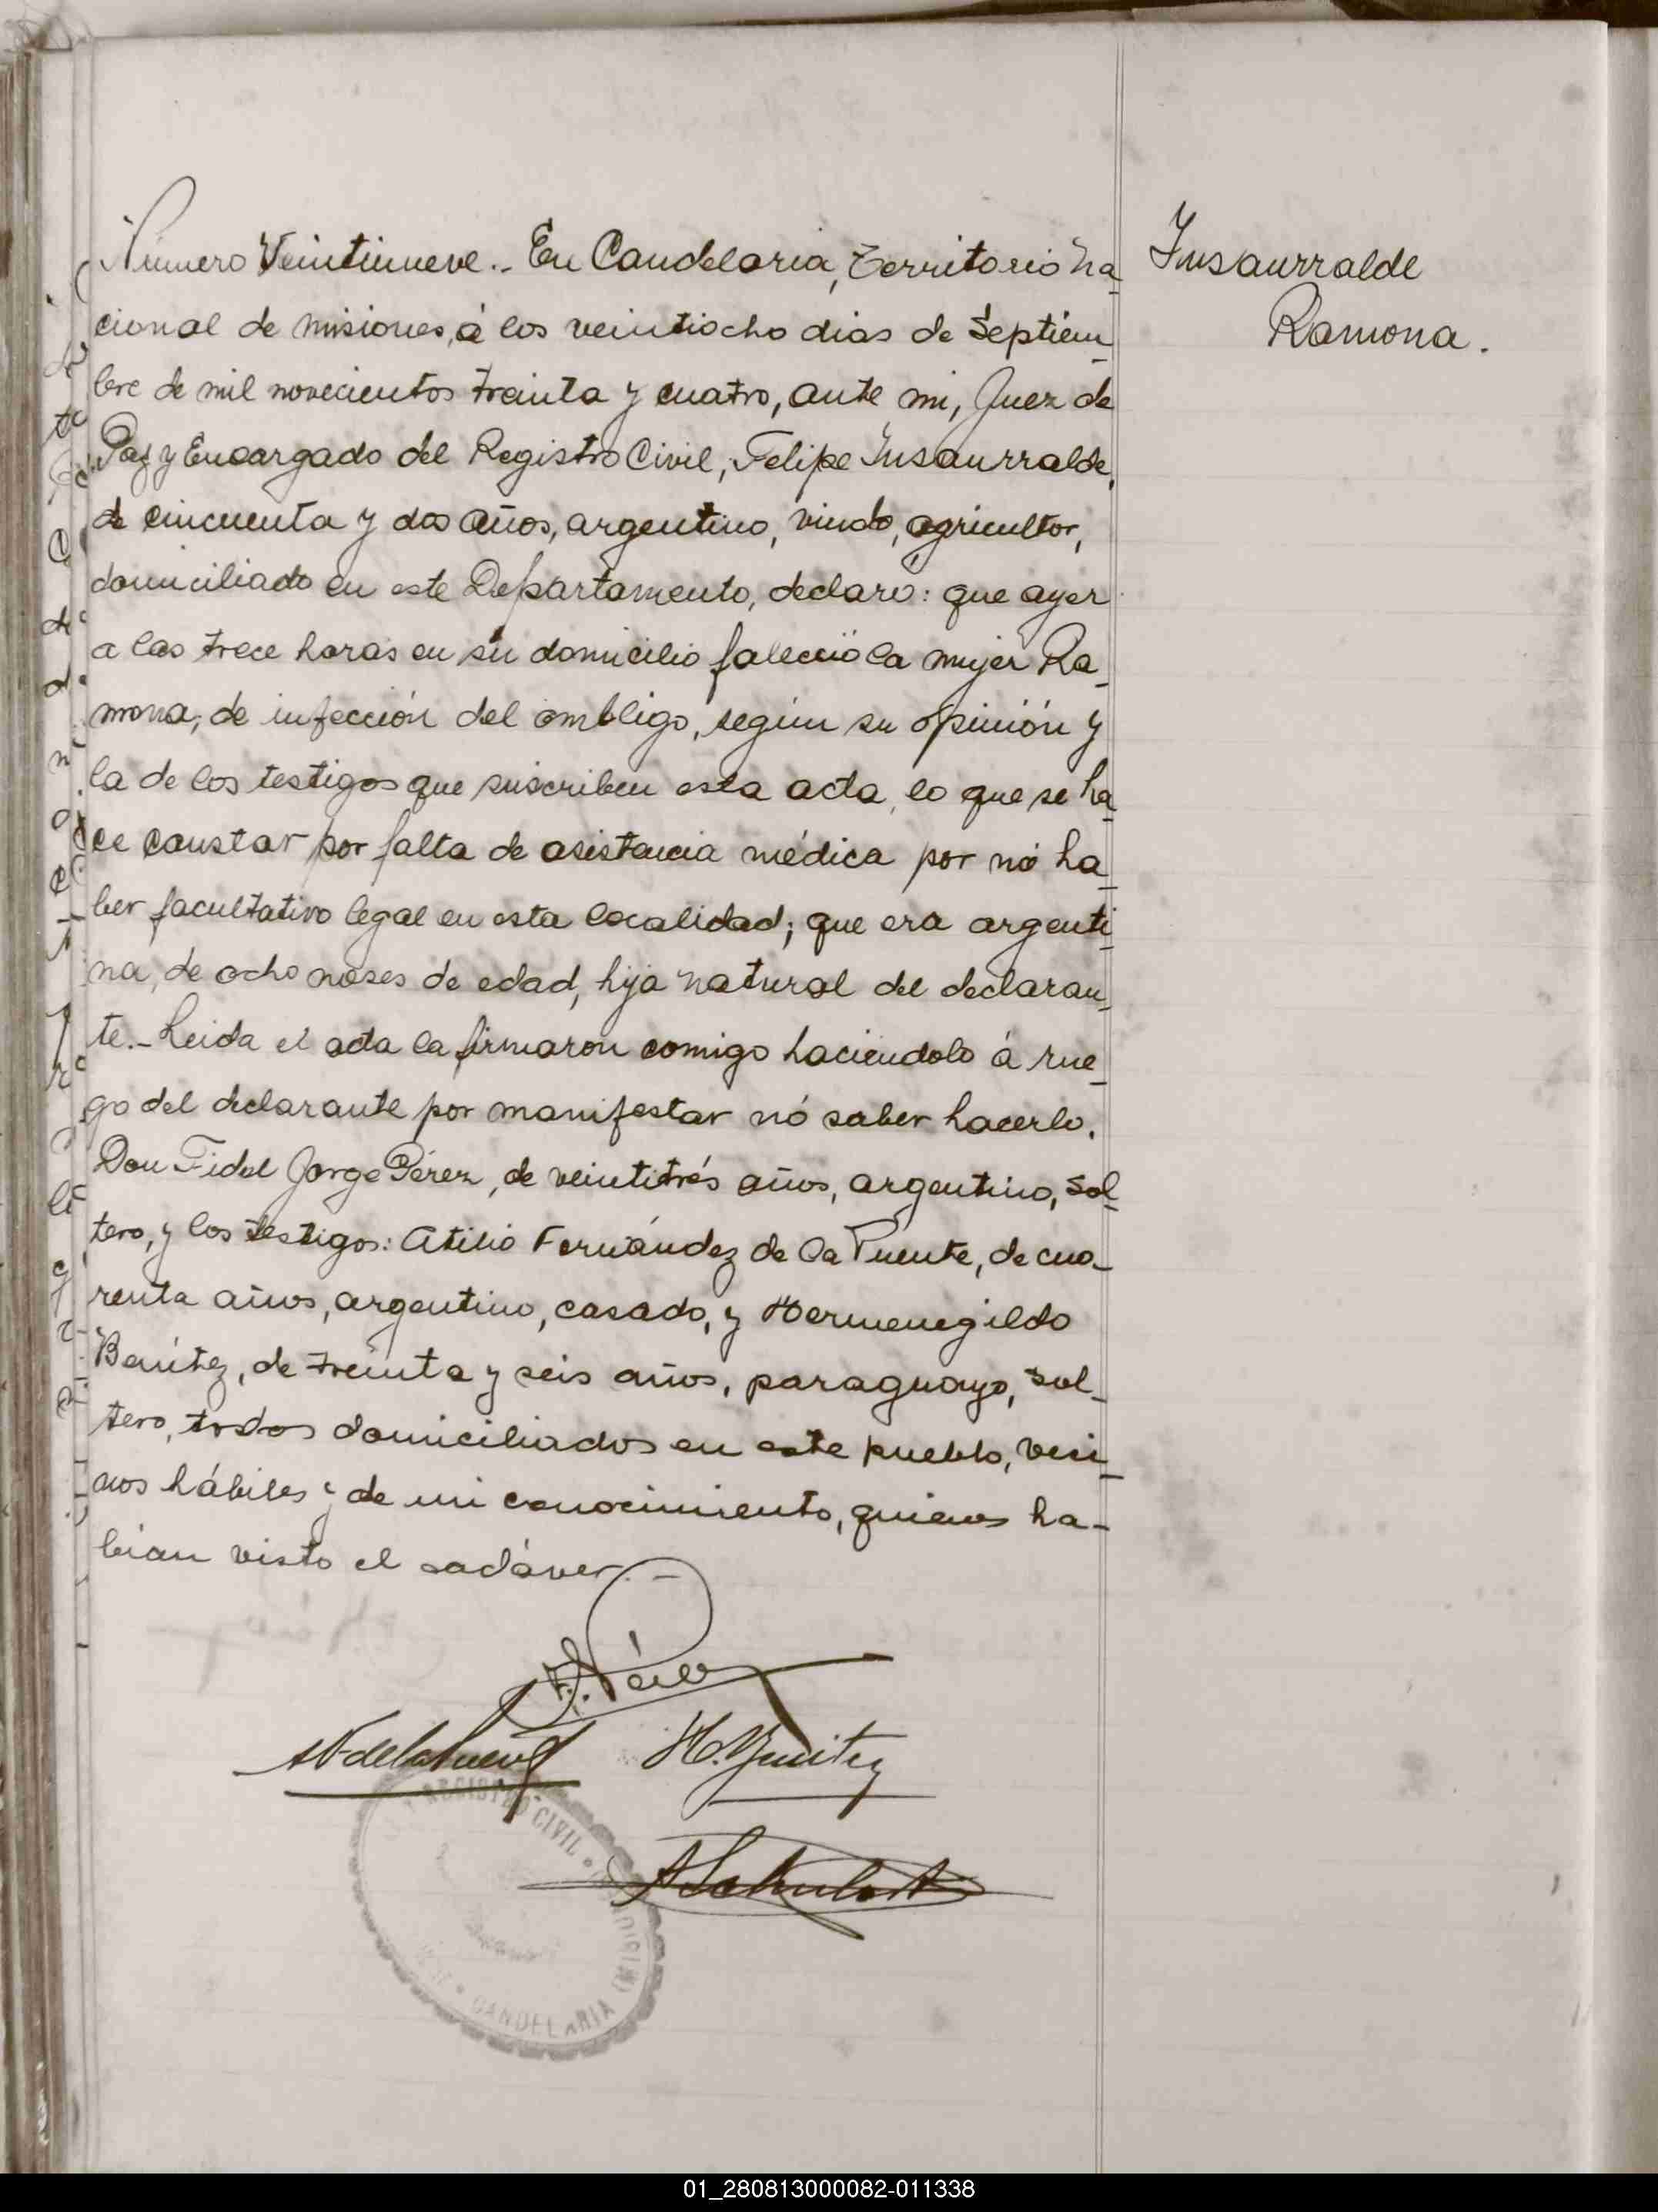 Número Veintinueve.- En Candelaria, Territorio na-
cional de misiones, á los veintiocho dias de Septiem-
bre de mil novecientos treinta y cuatro, ante mi, Juez de
Paz y Encargado del Registro Civil, Felipe Insaurralde,
de cincuenta y dos años, argentino, viudo, agricultor,
domiciliado en este Departamento, declaró: que ayer
a las trece horas en su domicilio falleció la mujer Ra-
mona, de infección del ombligo, según su opinión y
la de los testigos que suscriben esta acta, lo que se ha-
ce constar por falta de asistencia médica por nó ha-
ber facultativo legal en esta localidad; que era argenti-
na, de ocho meses de edad, hija natural del declaran-
te.- Leida el acta la firmaron comigo haciendolo á rue-
go del declarante por manifestar nó saber hacerlo.
Don Fidel Jorge Pérez, de veintitrés años, argentino, sol-
tero, y los testigos: Atilio Fernández de la Puente, de cua-
renta años, argentino, casado, y Hermenegildo
Benítez, de treinta y seis años, paraguayo, sol-
tero, todos domiciliados en este pueblo, vesi-
nos hábiles y de mi conocimiento, quienes ha-
bian visto el cadáver.-
Insaurralde
Ramona.
F. J. Pérez
H. Benitez
REGISTRO CIVIL
CANDELARIA (MISIONES)
01_280813000082-011338